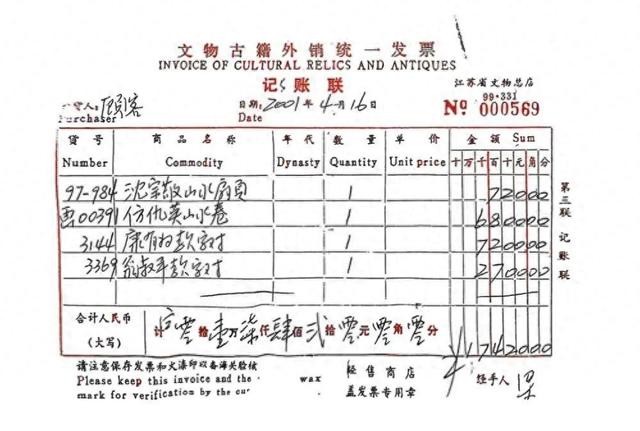 文物古籍外销统一发票
INVOICE OF CULTURAL RELICS AND ANTIQUES
记账联
江苏省文物总店
99·331
货人：顾客
日期：2001年4月16日
№ 000569
Purchaser
Date
货号 商品名称 年代 数量 单价 金额 Sum
Number Commodity Dynasty Quantity Unit price 十万千百十元角分
97-984 沈宗敬山水扇页 1 72000
票00391 仿仇英山水卷 1 680000
3144 康有为款字对 1 720000
3369 翁叔平款字对 1 270000
第三联 记账联
合计人民币
（大写）
计零拾壹万柒仟肆佰贰拾零元零角零分
¥1742000
请注意保存发票和火漆印以备海关验核
Please keep this invoice and the wax
mark for verification by the
经售商店
盖发票专用章
经手人